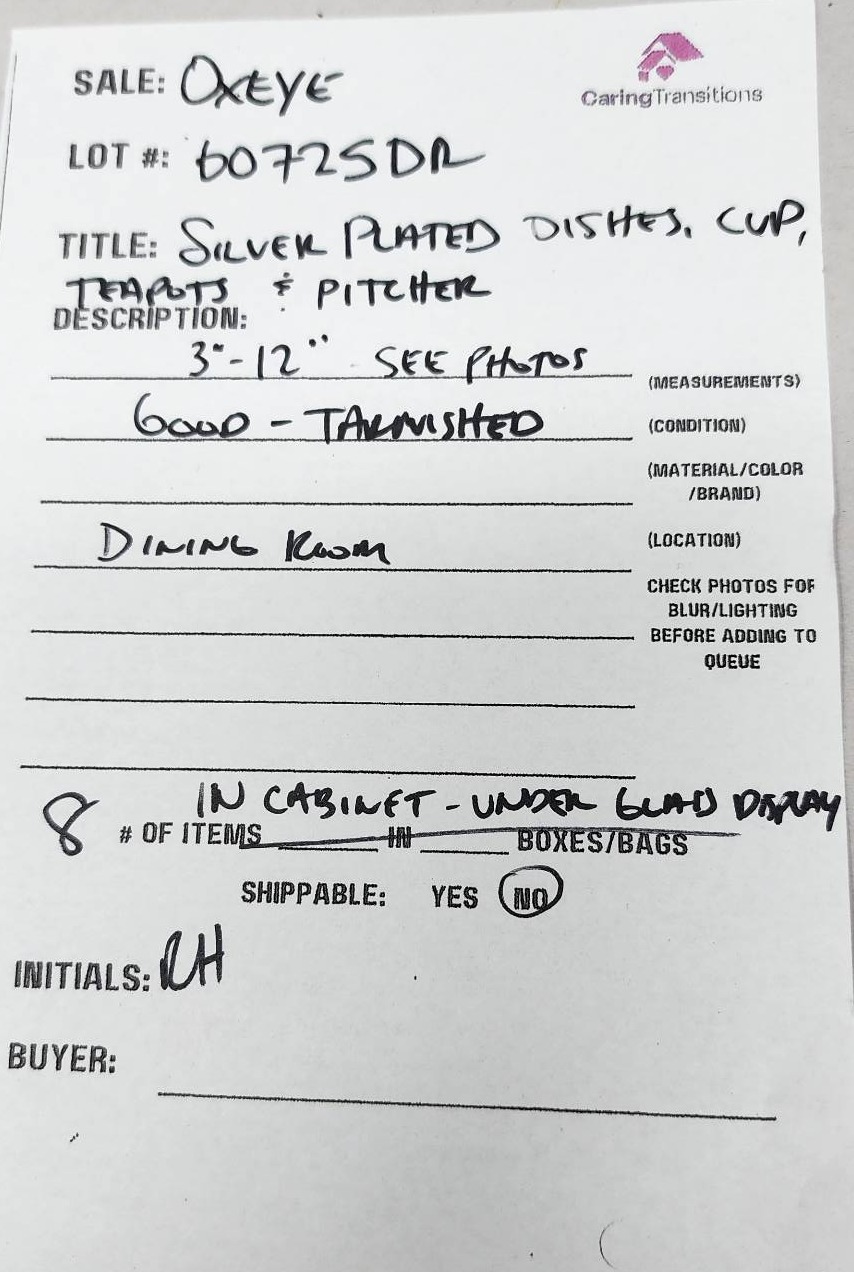 CaringTransitions
SALE: OXEYE
LOT #: 60725DR
TITLE: SILVER PLATED DISHES, CUP,
TEAPOTS & PITCHER
DESCRIPTION:
3"-12" SEE PHOTOS (MEASUREMENTS)
GOOD - TARNISHED (CONDITION)
(MATERIAL/COLOR
/BRAND)
DINING ROOM (LOCATION)
CHECK PHOTOS FOR
BLUR/LIGHTING
BEFORE ADDING TO
QUEUE
IN CABINET - UNDER GLASS DISPLAY
8 # OF ITEMS ____ IN ____ BOXES/BAGS
SHIPPABLE: YES NO
INITIALS: RH
BUYER: